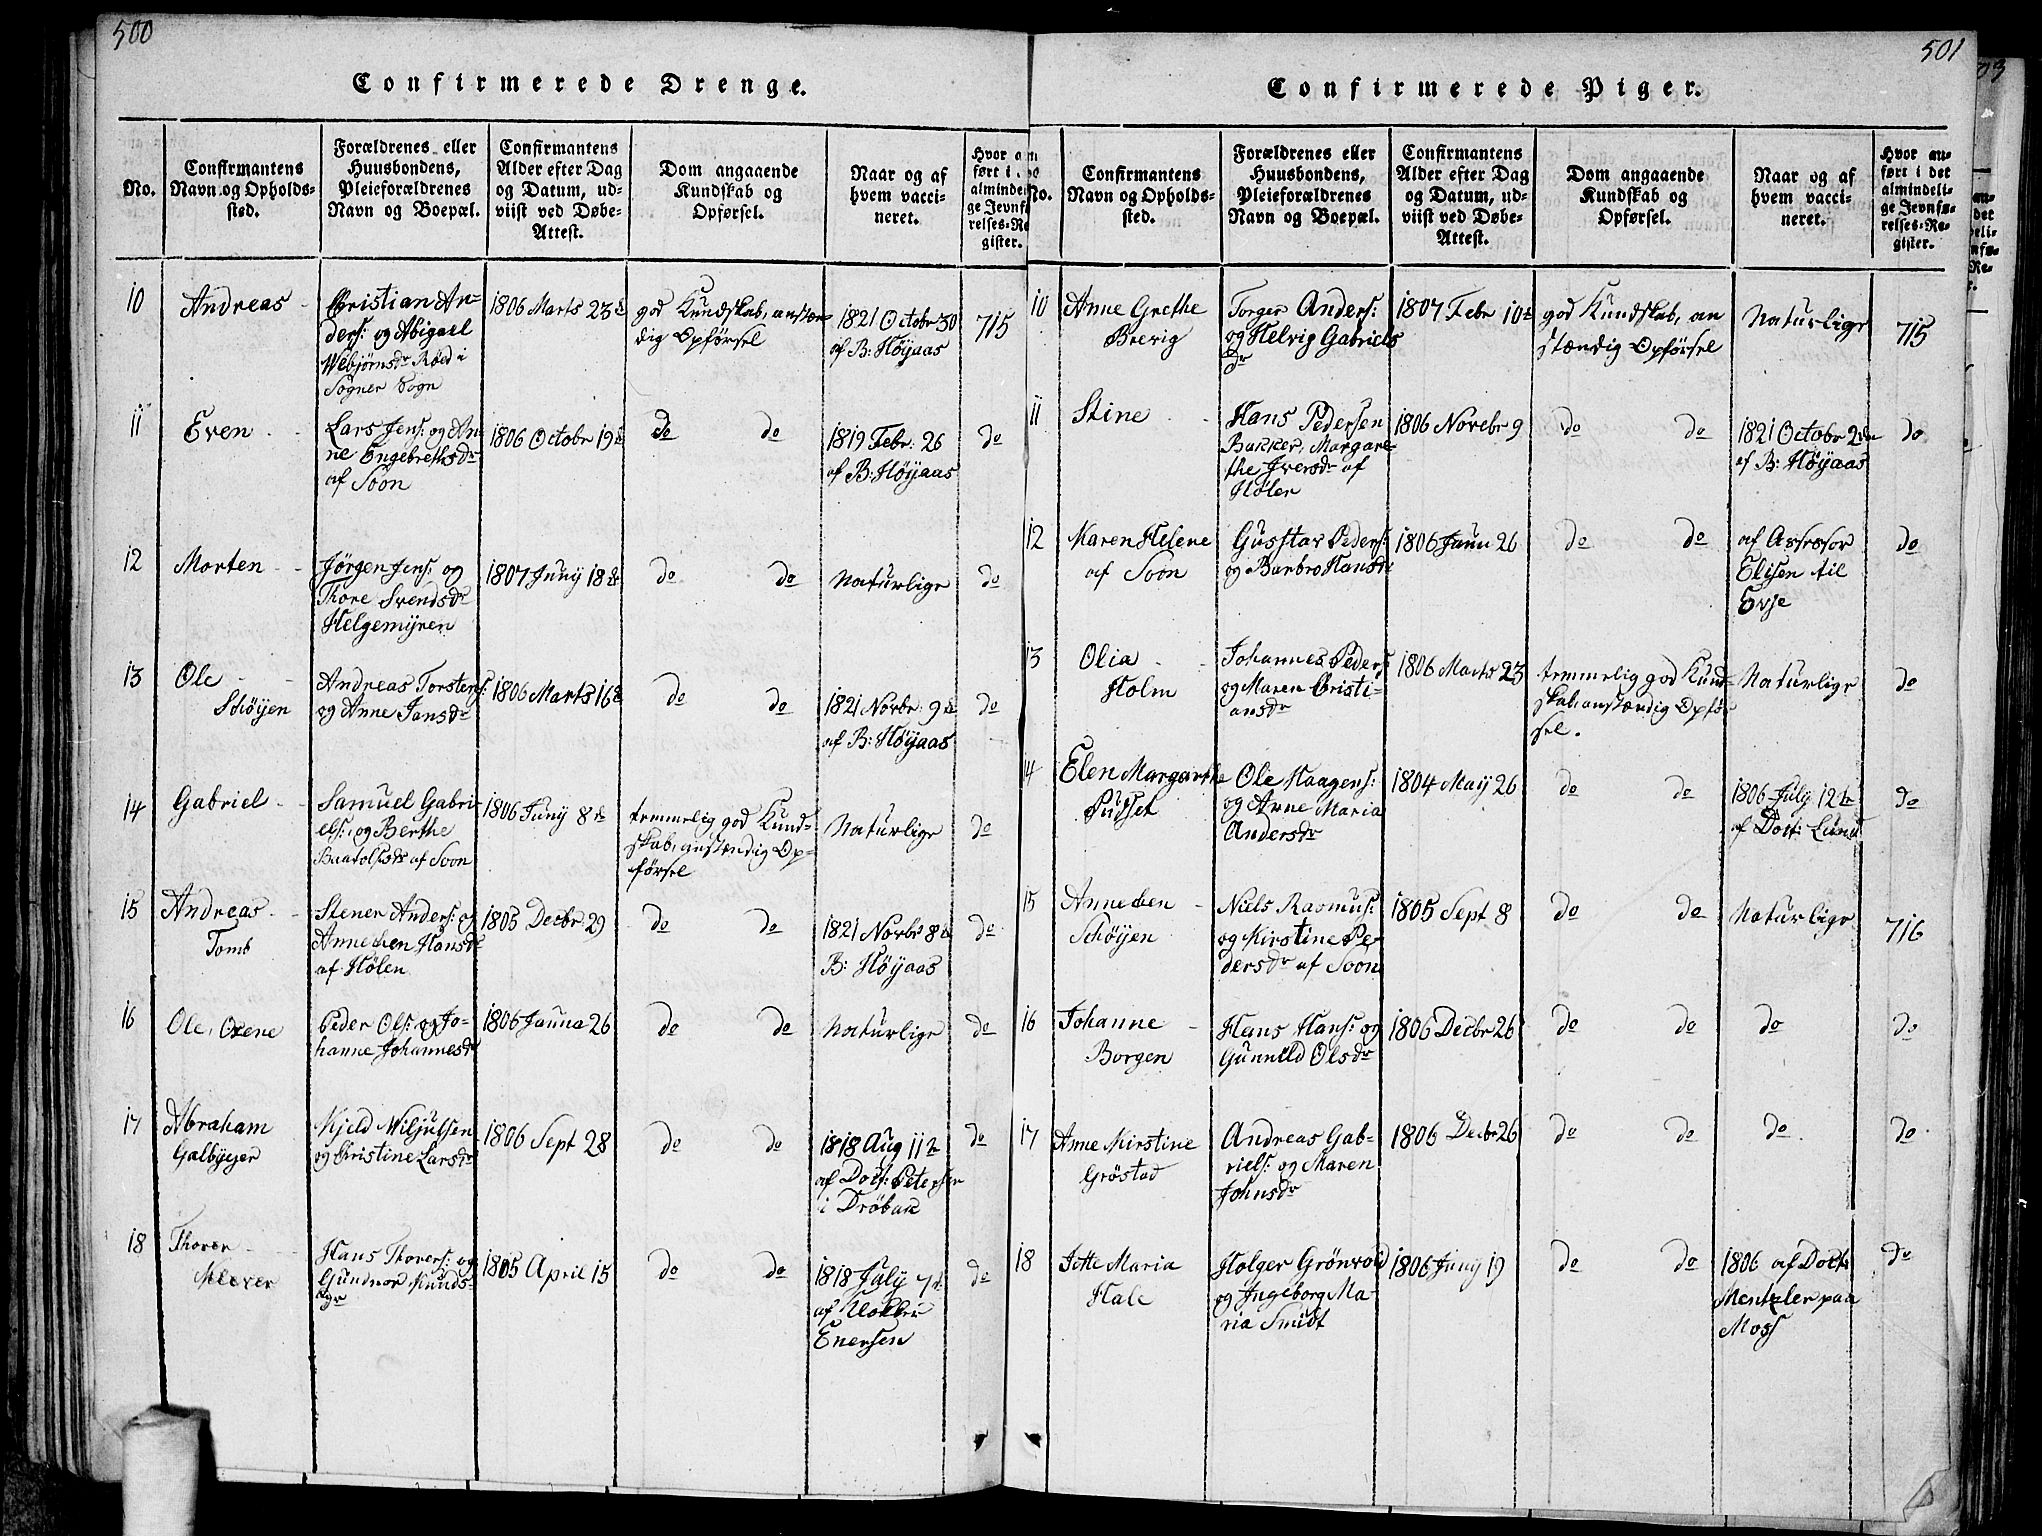 500
Confirmerede Drenge.
No.
Confirmantens
Navn og Opholds-
sted.
Forældrenes eller
Huusbondens,
Pleieforældrenes
Navn og Boepæl.
Confirmantens
Alder efter Dag
og Datum, ud-
viist ved Døbe-
Attest.
Dom angaaende
Kundskab og
Opførsel.
Naar og af
hvem vacci-
neret.
Hvor an
ført i
alminde
ge Jevnf
relses-Re
gister.
10
Andreas
Christian An-
ders: og Abigael
Webjørnsdr Røed i
Sogner Sogn
1806 Marts 23de
god Kundskab, anstæn
dig Opførsel
1821 Octobr 30
af B: Höyaas
715
11
Even
Lars Jens: og An-
ne Engebrethsdr
af Soon
1806 Octobr 19de
do do
1819 Febr: 26
af B: Höyaas
do
12
Morten
Jørgen Jens: og
Thore Svendsdr
Helgemyren
1807 Juny 18de
do do
Naturlige
do
13
Ole
Schöyen
Andreas Torstens:
og Anne Jansdr
1806 Marts 16de
do do
1821 Novbr: 9de
af B: Höyaas
do
14
Gabriel
Samuel Gabri-
els: og Berthe
Baarolfsdr af Soon
1806 Juny 8de
temmelig god Kund-
skab, anstændig Op-
førsel
Naturlige
do
15
Andreas
Tomb
Stener Anders: og
Annechen Hansdr
af Hölen
1805 Decbr 29
do do
1821 Novbr 8de
B: Höyaas
do
16
Ole, Oxene
Peder Ols: og Jo-
hanne Johannesdr
1806 Janua 26
do do
Naturlige
do
17
Abraham
Galbyejer
Kjeld Wiljulsen
og Christine Larsdr
1806 Sept 28
do do
1818 Aug 11te
af Doct: Petersen
i Dröbak
do
18
Thorer
Klever
Hans Thorers: og
Gundnor Knuds-
dr
1805 April 15
do do
1818 July 7de
af
Enersen
do
501
Confirmerede Piger.
No.
Confirmantens
Navn og Opholds-
sted.
Forældrenes eller
Huusbondens,
Pleieforældrenes
Navn og Boepæl.
Confirmantens
Alder efter Dag
og Datum, ud-
viist ved Døbe-
Attest.
Dom angaaende
Kundskab og
Opførsel.
Naar og af
hvem vacci-
neret.
Hvor an-
ført i det
almindeli-
ge Jevnfø-
relses-Re-
gister.
10
Anne Grethe
Brevig
Torger Anders:
og Helvig Gabriels
dr
1807 Febr 10de
god Kundskab, an
stændig Opførsel
Naturlige
715
11
Stine
Hans Pedersen
Bakker, Margare-
the Iversdr af
Hölen
1806 Novebr 9
do do
1821 Octobr 2den
af B: Höyaas
do
12
Maren Helene
af Soon
Gustav Peders:
og Barbro Hansdr
1806 Janu 26
do do
af Assesor
Elisen til
Evje
do
13
Olia
Holm
Johannes Peders:
og Maren Christi-
ansdr
1806 Marts 23
temmelig god Kund-
skab, anstændig Opfør
sel.
Naturlige
do
14
Elen Margarthe
Pudset
Ole Haagens:
og Anne Maria
Andersdr
1804 May 26
do do
1806 July 12te
af Doct: Lund
do
15
Annechen
Schöyen
Niels Rasmus:
og Kirstine Pe-
dersdr af Soon
1805 Sept 8
do do
Naturlige
716
16
Johanne
Borgen
Hans Hans: og
Gunnild Olsdr
1806 Decbr 26
do do
do
do
17
Anne Kirstine
Gröstad
Andreas Gab-
riels: og Maren
Johnsdr
1806 Decbr 26
do do
do
do
18
Jotte Maria
Hale
Holger Grönvold
og Ingeborg Ma-
ria Smidt
1806 Juny 19
do do
1806 af Doct:
Mentzler paa
Moss
do